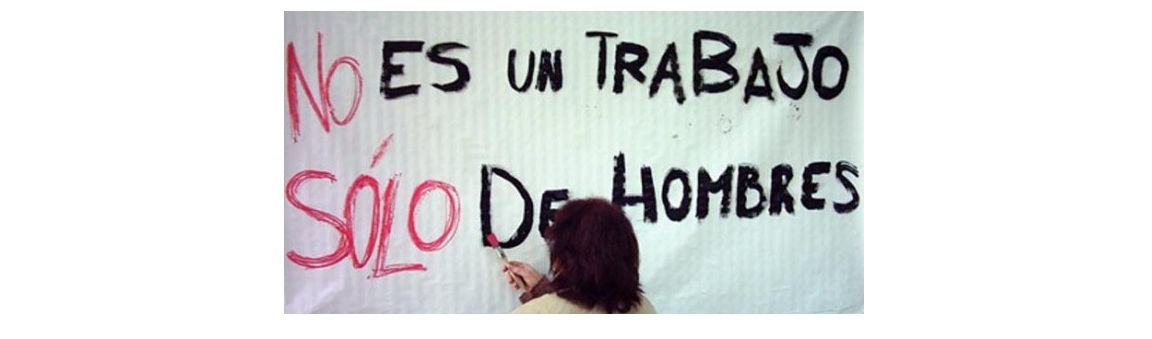 NO ES UN TRABAJO
SÓLO DE HOMBRES